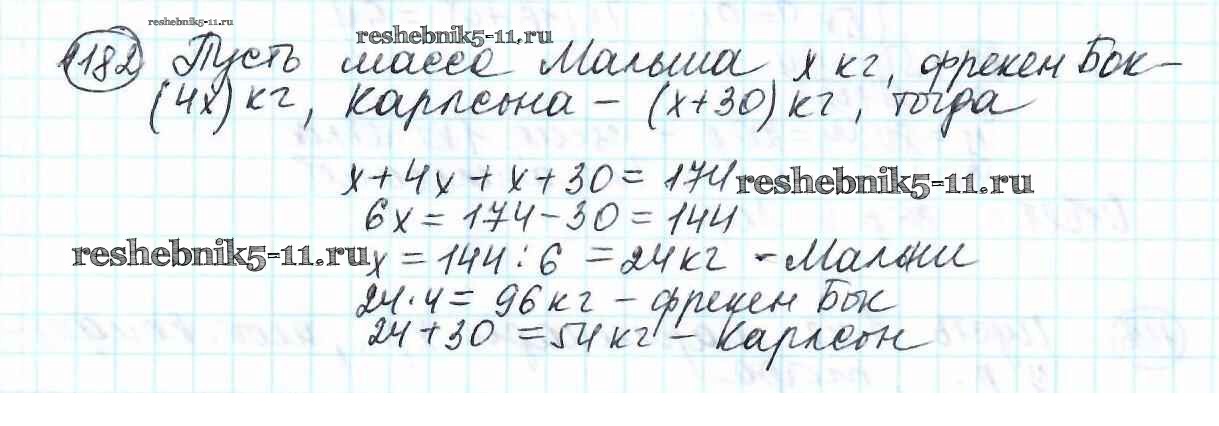 reshebnik5-11.ru
reshebnik5-11.ru
182 Пусть масса Малыша x кг, фрекен Бок –
(4x) кг, Карлсона – (x+30) кг, тогда
x + 4x + x + 30 = 174
reshebnik5-11.ru
6x = 174 - 30 = 144
reshebnik5-11.ru
x = 144 : 6 = 24 кг - Малыш
24 · 4 = 96 кг – фрекен Бок
24 + 30 = 54 кг – Карлсон